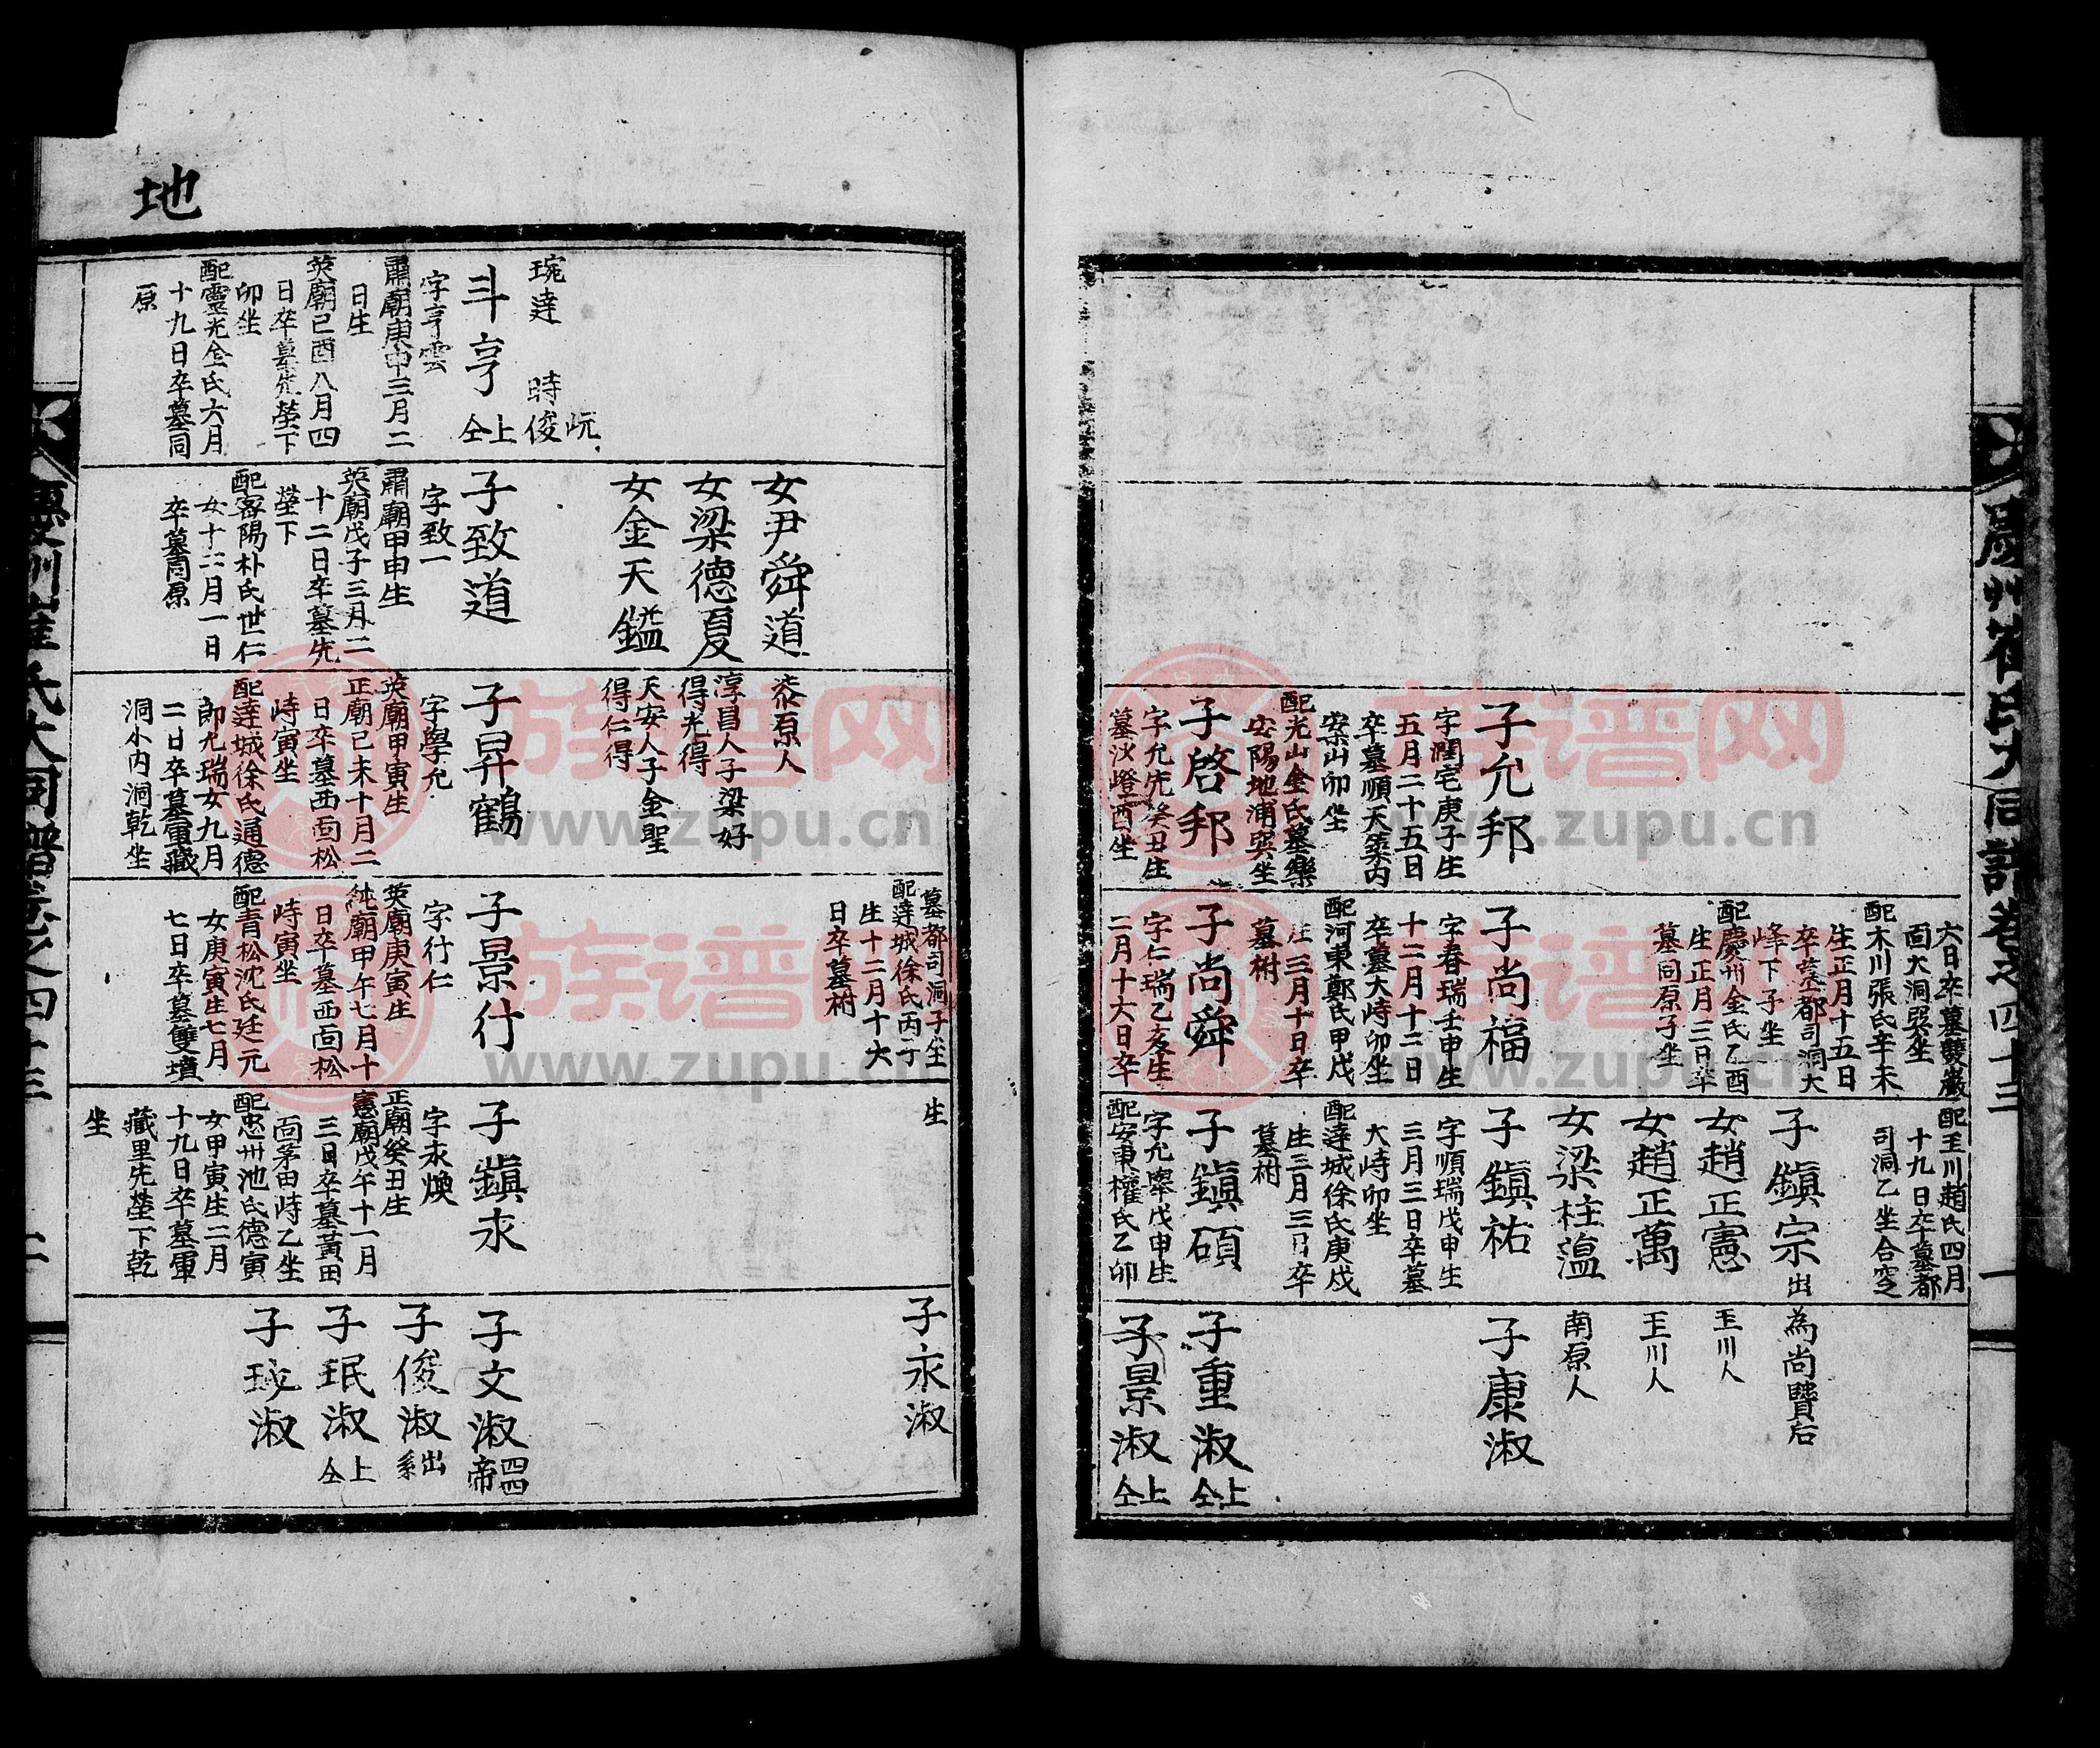 慶州崔氏大同譜卷之四十三
一
子允邦
字潤宅庚子生
五月二十五日
卒墓順天築內
案山卯坐
配光山金氏墓樂
安陽地浦巽坐
子啓邦
字允先癸丑生
墓汝嶝酉坐
六日卒墓雙巖
面大洞巽坐
配木川張氏辛未
生正月十五日
卒墓都司洞大
峰下子坐
配慶州金氏乙酉
生正月三日卒
墓同原子坐
子尚福
字春瑞壬申生
十二月十二日
卒墓大峙卯坐
配河東鄭氏甲戌
生三月十日卒
墓祔
子尚舜
字仁瑞乙亥生
二月十六日卒
配玉川趙氏四月
十九日卒墓都
司洞乙坐合窆
子鎭宗出
女趙正憲
女趙正萬
女梁柱溫
子鎭祐
字順瑞戊申生
三月三日卒墓
大峙卯坐
配達城徐氏庚戌
生三月三日卒
墓祔
子鎭碩
字允舉戊申生
配安東權氏乙卯
為尚贇后
玉川人
玉川人
南原人
子康淑
子重淑上仝
子景淑上仝
地
琓達 時俊 岏
斗亨上仝
字亨雲
肅廟庚申三月二
日生
英廟己酉八月四
日卒墓先塋下
卯坐
配靈光金氏六月
十九日卒墓同
原
女尹舜道
女梁德夏
女金天鎰
子致道
字致一
肅廟甲申生
英廟戊子三月二
十二日卒墓先
塋下
配密陽朴氏世仁
女十六月一日
卒墓同原
漆原人
淳昌人子梁好
得光得
天安人子金聖
得仁得
子昇鶴
字學允
英廟甲寅生
正廟己未十月二
日卒墓西面松
峙寅坐
配達城徐氏通德
郎允瑞女九月
二日卒墓軍藏
洞小內洞乾坐
墓都司洞子坐
配達城徐氏丙子
生十二月十六
日卒墓祔
子景行
字行仁
英廟庚寅生
純廟甲午七月十
日卒墓西面松
峙寅坐
配青松沈氏廷元
女庚寅生七月
七日卒墓雙墳
生
子鎭永
字永煥
正廟癸丑生
憲廟戊午十一月
三日卒墓黃田
面茅田峙乙坐
配忠州池氏德寅
女甲寅生二月
十九日卒墓軍
藏里先塋下乾
坐
子永淑
子文淑
子俊淑出系
子珉淑上仝
子珹淑
慶州崔氏大同譜卷之四十三
二